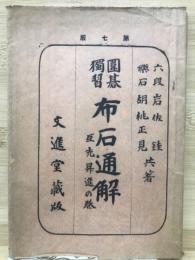 第七版
六段 岩佐銈
石 胡桃正見
共著
圍碁
獨習
布石通解
互先昇進の
文進堂藏版